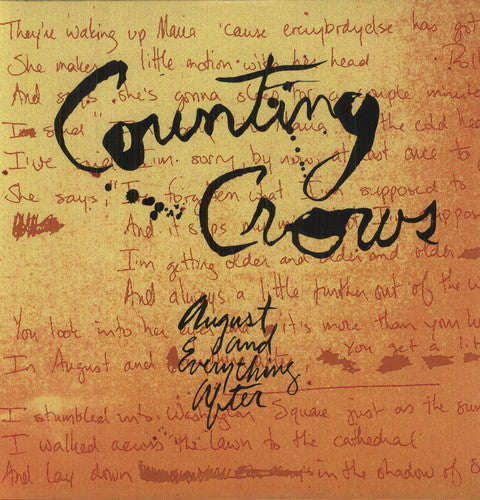 They're waking up Maria 'cause everybodyelse has got
She makes little motion with her head
And says she's gonna sleep for a couple minutes
Counting
I've said I'm sorry by now at least once to
She says, "I've forgotten what I'm supposed to
Crows
And it slips my
I'm getting older and older and older
And always a little further out of the w
You look into her and it's more than your
August
and
Everything
After
In August and You get a lit
I stumbled into Washington Square just as the sun
I walked across the lawn to the cathedral
And lay down in the shadow of S